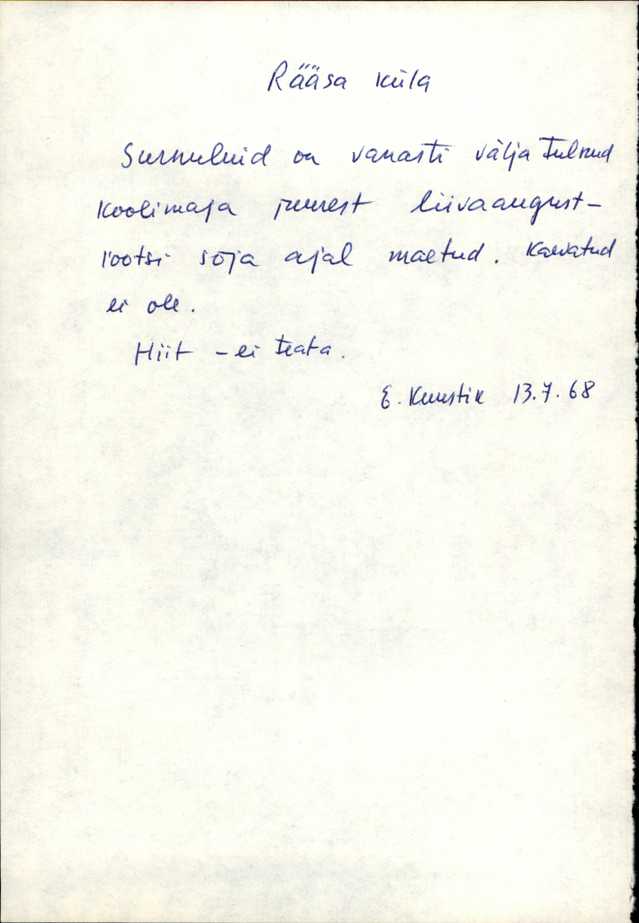 Rääsa küla
Surnuluid on vanasti välja tulnud
koolimaja juurest liivaaugust –
rootsi sõja ajal maetud. Kaevatud
ei ole.
Hiit – ei teata.
E. Kuustik 13.7.68